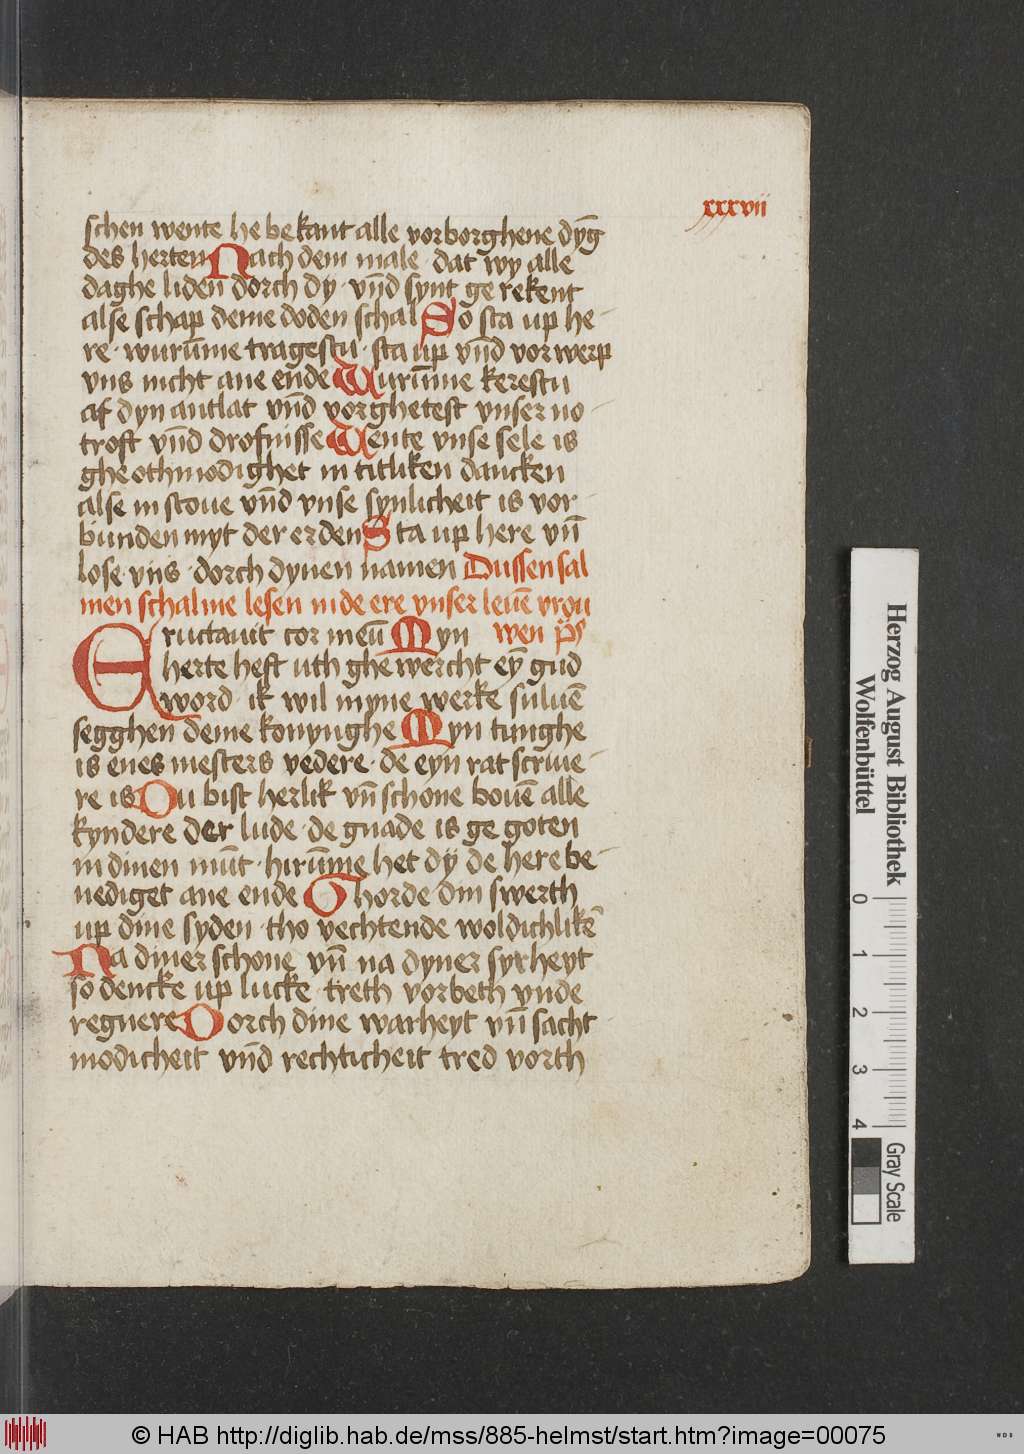 xxxvii
schen wente he bekant alle vorborghene dyg̅
des herten Nach dem male · dat wy alle
daghe liden dorch dy · vn̅d synt ge rekent
alse schap deme doden schal So sta up he-
re · wuru̅me tragestu · sta up vn̅d vor werp
vns nicht ane ende Wuru̅me kerestu
af dyn antlat vn̅d vorghetest vnser no-
troft vn̅d drofnisse Wente vnse sele is
ghe othmodighet in titliken dancken
alse in stoue vn̅d vnse synlicheit is vor-
bunden myt der erden Sta up here vn̅
lose vns · dorch dynen namen Dussen sal
men schalme lesen in de ere vnser leue̅ vrou
wen p̅s
Eructauit cor meu̅ Myn
herte heft uth ghe wercht ey̅ gud
word · ik wil myne werke suluē
segghen deme konynghe Myn tunghe
is enes mesters vedere · de eyn rat scriue-
re is Du bist herlik vn̅ schone bouē alle
kyndere der lude · de gnade is ge goten
in dinen mu̅t · hiru̅me het dy de here be-
nediget ane ende Ghorde din swerth
up dine syden · tho vechtende woldichlikē
Na diner schone vn̅ na dyner syrheyt
so dencke up lucke · treth vorbeth vnde
regnere Dorch dine warheyt vn̅ sacht-
modicheit vn̅d rechticheit tred vorth
Herzog August Bibliothek
Wolfenbüttel
0 1 2 3 4
Gray Scale
© HAB http://diglib.hab.de/mss/885-helmst/start.htm?image=00075